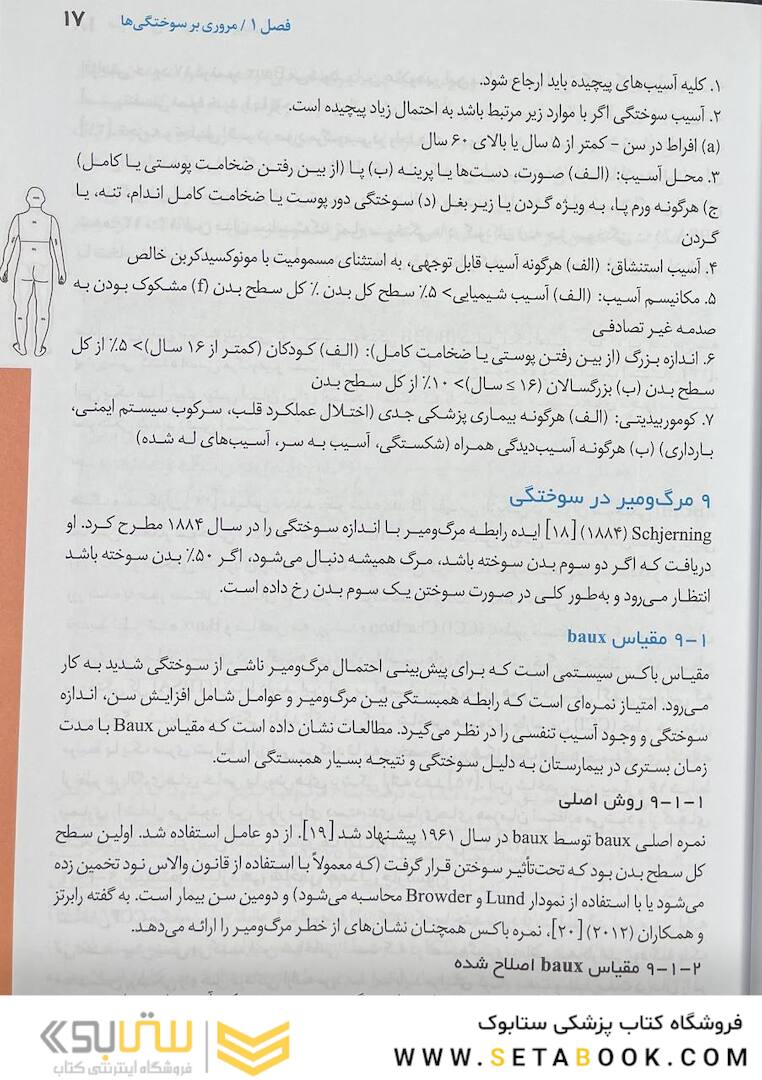 فصل ۱ / مروری بر سوختگی‌ها ۱۷
۱. کلیه آسیب‌های پیچیده باید ارجاع شود.
۲. آسیب سوختگی اگر با موارد زیر مرتبط باشد به احتمال زیاد پیچیده است.
(a) افراط در سن - کمتر از ۵ سال یا بالای ۶۰ سال
۳. محل آسیب: (الف) صورت، دست‌ها یا پرینه (ب) پا (از بین رفتن ضخامت پوستی یا کامل)
ج) هرگونه ورم پا، به ویژه گردن یا زیر بغل (د) سوختگی دور پوست یا ضخامت کامل اندام، تنه، یا
گردن
۴. آسیب استنشاق: (الف) هرگونه آسیب قابل توجهی، به استثنای مسمومیت با مونوکسیدکربن خالص
۵. مکانیسم آسیب: (الف) آسیب شیمیایی> ۵٪ سطح کل بدن ٪ کل سطح بدن (f) مشکوک بودن به
صدمه غیر تصادفی
۶. اندازه بزرگ (از بین رفتن پوستی یا ضخامت کامل): (الف) کودکان (کمتر از ۱۶ سال)> ۵٪ از کل
سطح بدن (ب) بزرگسالان (۱۶ ≥ سال)> ۱۰٪ از کل سطح بدن
۷. کوموربیدیتی: (الف) هرگونه بیماری پزشکی جدی (اختلال عملکرد قلب، سرکوب سیستم ایمنی،
بارداری) (ب) هرگونه آسیب‌دیدگی همراه (شکستگی، آسیب به سر، آسیب‌های له شده)
۹ مرگ‌ومیر در سوختگی
Schjerning (۱۸۸۴) [۱۸] ایده رابطه مرگ‌ومیر با اندازه سوختگی را در سال ۱۸۸۴ مطرح کرد. او
دریافت که اگر دو سوم بدن سوخته باشد، مرگ همیشه دنبال می‌شود، اگر ۵۰٪ بدن سوخته باشد
انتظار می‌رود و به‌طور کلی در صورت سوختن یک سوم بدن رخ داده است.
۹-۱ مقیاس baux
مقیاس باکس سیستمی است که برای پیش‌بینی احتمال مرگ‌ومیر ناشی از سوختگی شدید به کار
می‌رود. امتیاز نمره‌ای است که رابطه همبستگی بین مرگ‌ومیر و عوامل شامل افزایش سن، اندازه
سوختگی و وجود آسیب تنفسی را در نظر می‌گیرد. مطالعات نشان داده است که مقیاس Baux با مدت
زمان بستری در بیمارستان به دلیل سوختگی و نتیجه بسیار همبستگی است.
۹-۱-۱ روش اصلی
نمره اصلی baux توسط baux در سال ۱۹۶۱ پیشنهاد شد [۱۹]. از دو عامل استفاده شد. اولین سطح
کل سطح بدن بود که تحت‌تأثیر سوختن قرار گرفت (که معمولاً با استفاده از قانون والاس نود تخمین زده
می‌شود یا با استفاده از نمودار Lund و Browder محاسبه می‌شود) و دومین سن بیمار است. به گفته رابرتز
و همکاران (۲۰۱۲) [۲۰]، نمره باکس همچنان نشان‌های از خطر مرگ‌ومیر را ارائه می‌دهد.
۹-۱-۲ مقیاس baux اصلاح شده
فروشگاه کتاب پزشکی ستابوک
WWW.SETABOOK.COM
ستابوک
فروشگاه اینترنتی کتاب